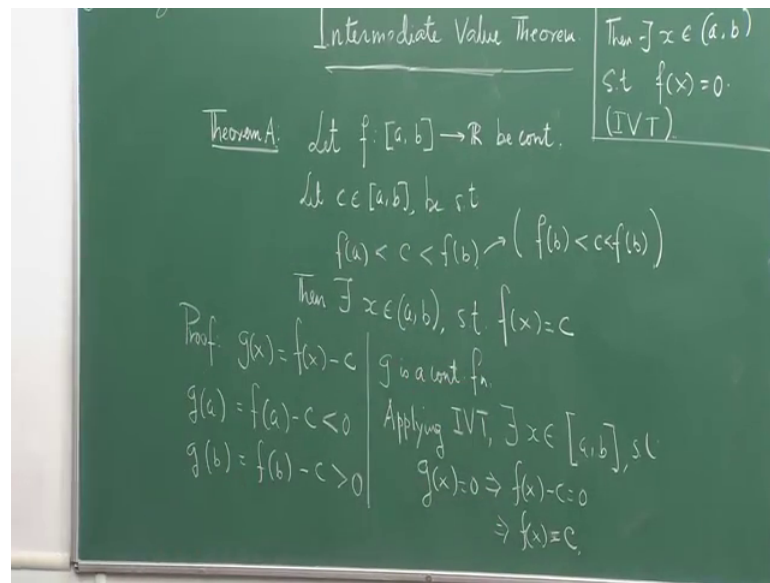 Intermediate Value Theorem.
Then ∃ x ∈ (a, b)
s.t f(x) = 0.
(IVT)
Theorem A. Let f : [a, b] → ℝ be cont.
Let c ∈ [a, b], be s.t
f(a) < c < f(b) → ( f(b) < c < f(b) )
Then ∃ x ∈ (a, b), s.t. f(x) = c
Proof: g(x) = f(x) - c
g(a) = f(a) - c < 0
g(b) = f(b) - c > 0
g is a cont. fn.
Applying IVT, ∃ x ∈ [a, b], st
g(x) = 0 ⇒ f(x) - c = 0
⇒ f(x) = c.